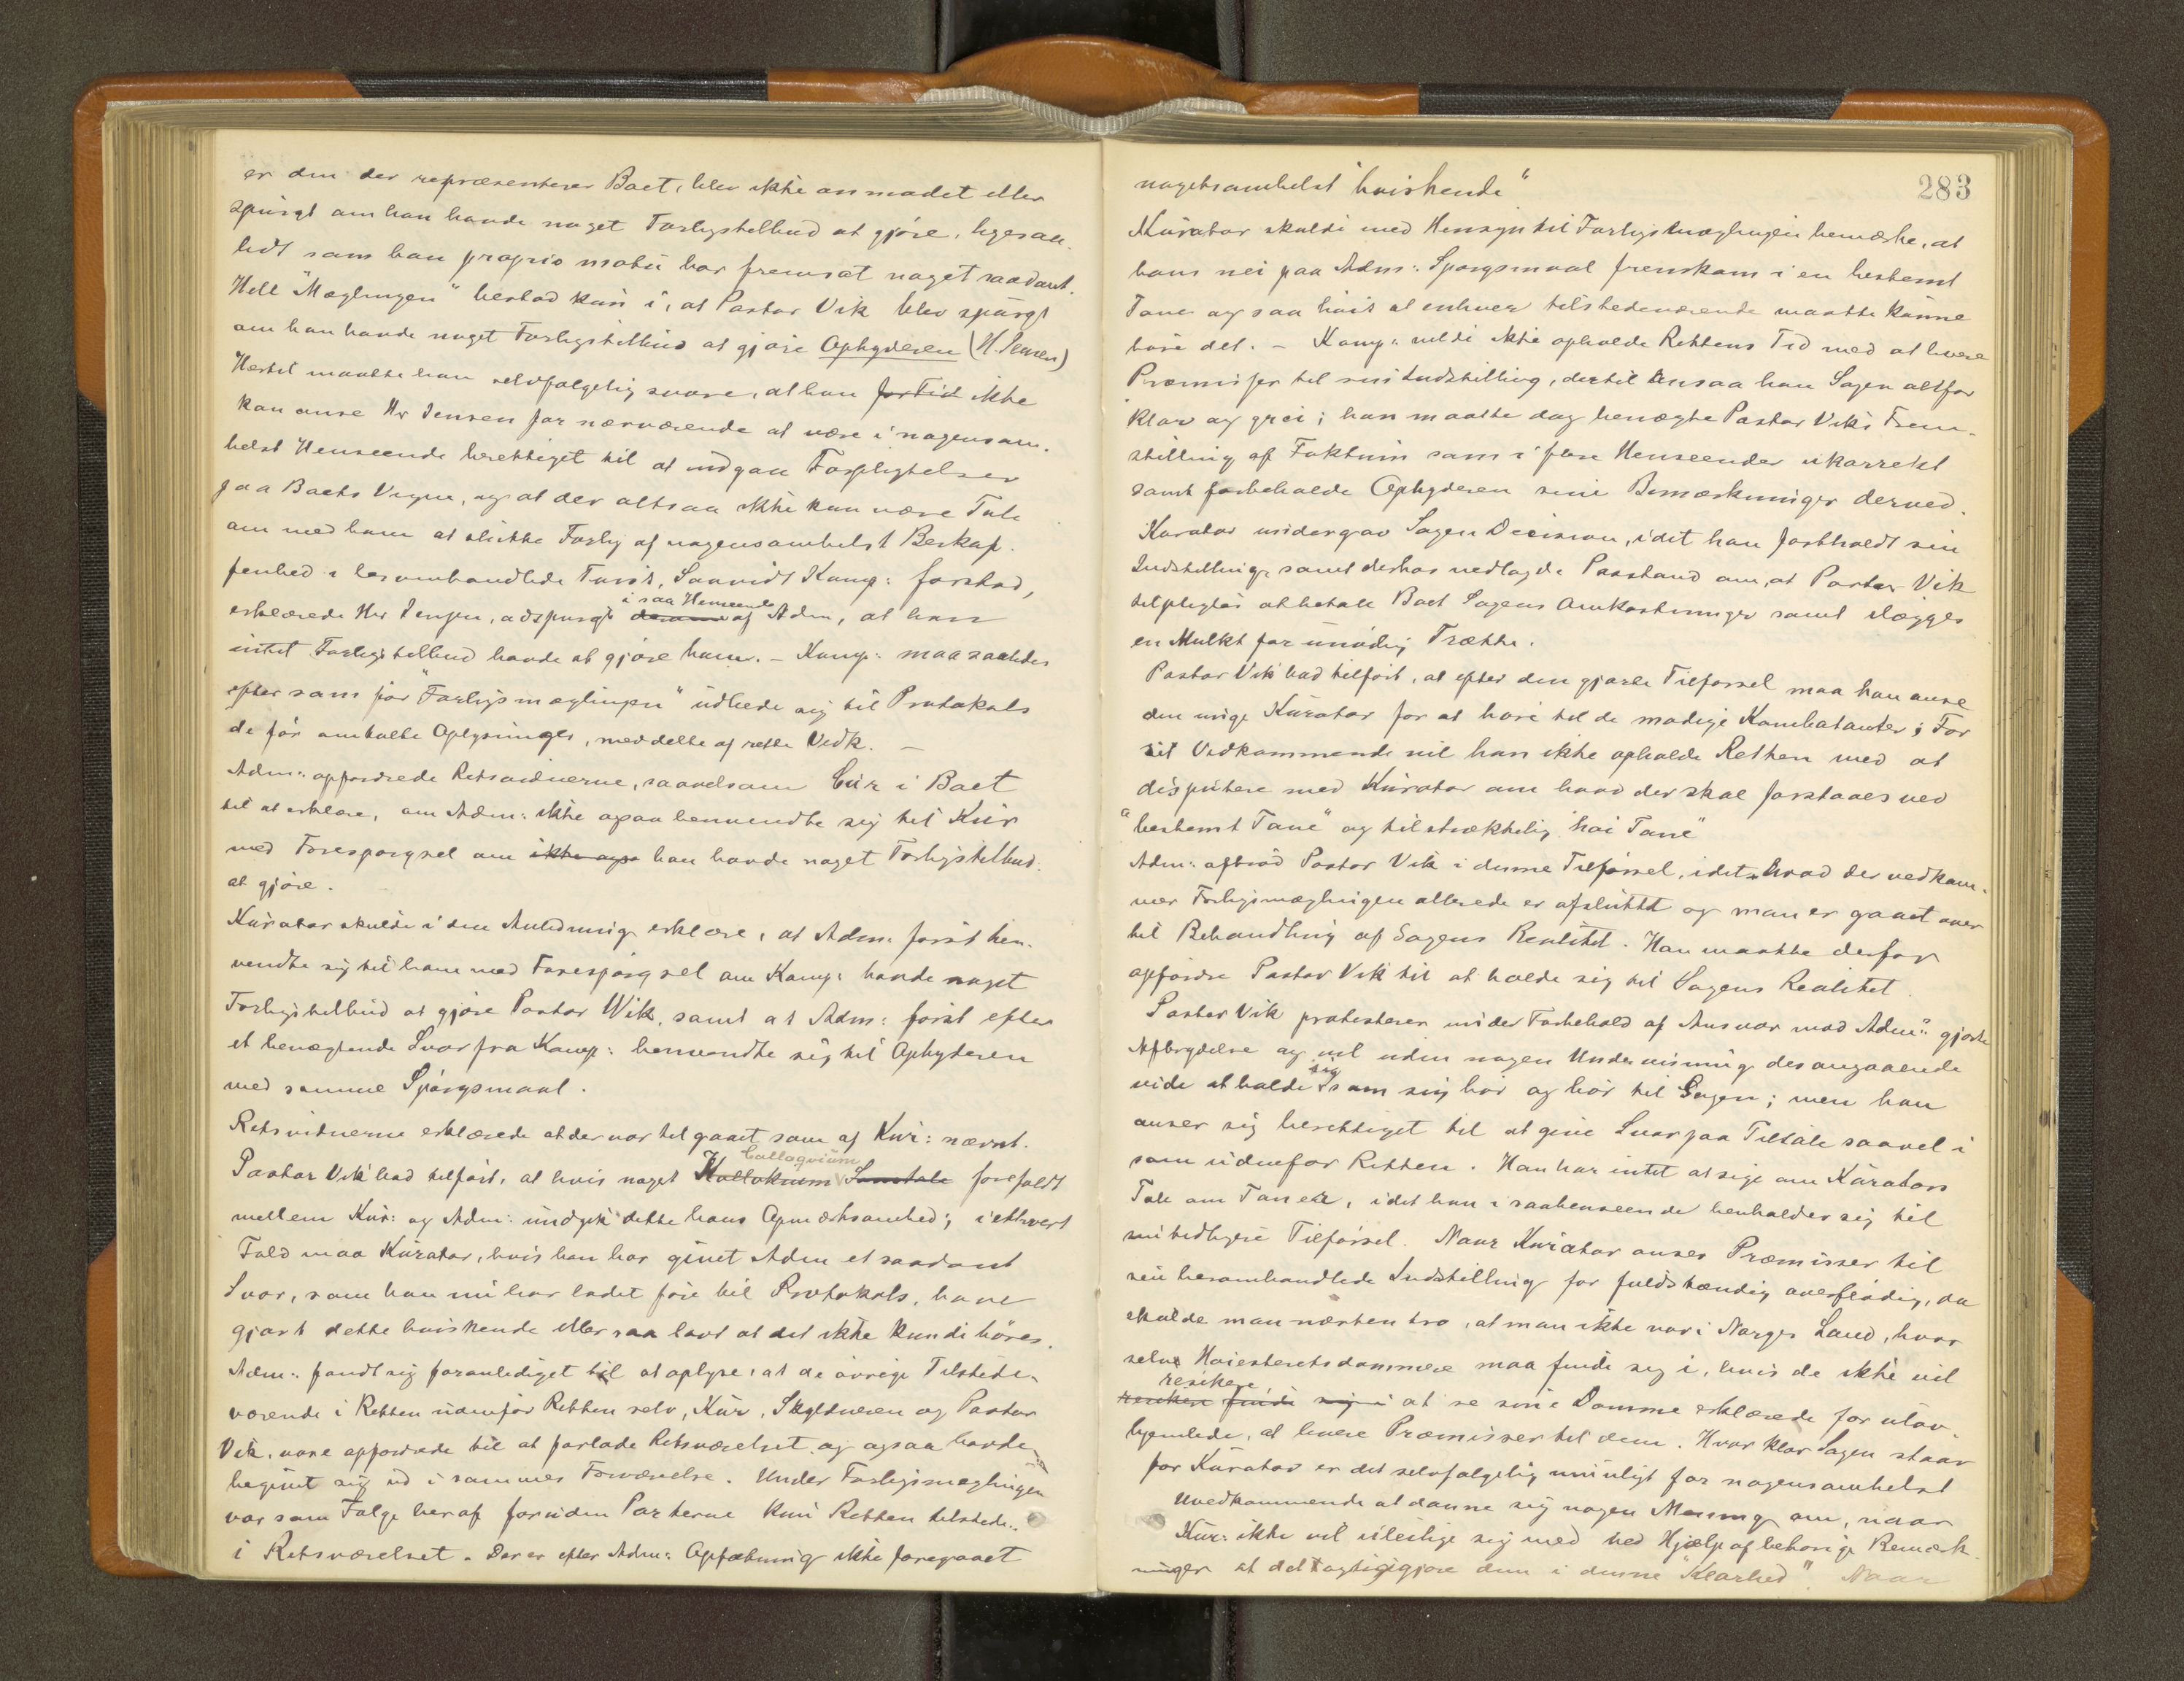 er den der repræsenterer Boet, blev ikke anmodet eller
spurgt om han havde noget Forligstilbud at gjøre, ligesaa
lidt som han proprio motu har fremsat noget saadant.
Hele "Mæglingen" bestod kun i, at Pastor Vik blev spurgt
om han havde noget Forligstilbud at gjøre Ophyderen (H. Jensen)
Hertil maatte han selvfølgelig svare, at han for Tid ikke
kan anse Hr Jensen for nærværende at være i nogensom-
helst Henseende berettiget til at indgaa Forpligtelser
paa Boets Vegne, og at der altsaa ikke kan være Tale
om med ham at slutte Forlig af nogensomhelst Beskaf-
fenhed i her omhandlede Tvist, Saavidt Komp: forstod,
erklærede Hr Jensen, adspurgt i saa Henseende af Adm, at han
intet Forligstilbud havde at gjøre ham. - Komp: maa saaledes
efter som før "Forligsmæglingen" udbede sig til Protokols
de før omtalte Oplysninger, meddelte af rette Vedk. —
Adm: opfordrede Retsvidnerne, saavelsom Cur i Boet
til at erklære, om Adm: ikke ogsaa henvendte sig til Kur
med Forespørgsel om ikke ogs han havde noget Forligstilbud
at gjøre.
Kurator skulde i den Anledning erklære, at Adm: først hen-
vendte sig til ham med Forespørgsel om Komp: havde noget
Forligstilbud at gjøre Pastor Wik, samt at Adm: først efter
et benægtende Svar fra Komp: henvendte sig til Ophyderen
med samme Spørgsmaal.
Retsvidnerne erklærede at der var tilgaaet som af Kur: nævnt.
Pastor Vik bad tilført, at hvis noget Kollokium Colloqvium Samtale forefaldt
mellem Kur: og Adm: undgik dette hans Opmærksomhed; i ethvert
Fald maa Kurator, hvis han har givet Adm et saadant
Svar, som han nu har ladet føre til Protokols, have
gjort dette hviskende eller saa lavt at det ikke kunde høres.
Adm: fandt sig foranlediget til at oplyse, at de øvrige Tilstede-
værende i Retten udenfor Retten selv, Kur, Skyldneren og Pastor
Vik, vare opfordrede til at forlade Retsværelset og ogsaa havde
begivet sig ud i sammes Forværelse. Under Forligsmæglingen
var som Følge heraf foruden Parterne kun Retten tilstede
i Retsværelset. Der er efter Adm: Opfatning ikke foregaaet
283
nogetsomhelst "hviskende"
Kurator skulde med Hensyn til Forligsmæglingen bemærke, at
hans nei paa Adm: Spørgsmaal fremkom i en bestemt
Tone og saa høit at enhver tilstedeværende maatte kunne
høre det. - Komp: vilde ikke opholde Rettens Tid med at levere
Præmisser til sin Indstilling, dertil ansaa han Sagen altfor
klar og grei; han maatte dog benægte Pastor Viks Frem-
stilling af Faktum som i flere Henseender ukorrekt
samt forbeholde Ophyderen sine Bemærkninger derved.
Kurator undergav Sagen Decision, idet han fastholdt sin
Indstilling, samt derhos nedlagde Paastand om, at Pastor Vik
tilpligtes at betale Boet Sagens Omkostninger samt ilægges
en Mulkt for unødig Trætte.
Pastor Vik bad tilført, at efter den gjorte Tilførsel maa han anse
den unge Kurator for at høre til de modige Kombatanter; For
sit Vedkommende vil han ikke opholde Retten med at
disputere med Kurator om hvad der skal forstaaes ved
"bestemt Tone" og tilstrækkelig "høi Tone"
Adm: afbrød Pastor Vik i denne Tilførsel, idet hvad der vedkom-
mer Forligsmæglingen allerede er afsluttet og man er gaaet over
til Behandling af Sagens Realitet. Han maatte derfor
opfordre Pastor Vik til at holde sig til Sagens Realitet.
Pastor Vik protesterer under Forbehold af Ansvar mod Adm: gjorte
Afbrydelse og vil uden nogen Undervisning desangaaende
vide at holde sig som sig hør og bør til Sagen; men han
anser sig berettiget til at give Svar paa Tiltale saavel i
som udenfor Retten. Han har intet at sige om Kurators
Tale om Toner, idet han i saahenseende henholder sig til
sin tidligere Tilførsel. Naar Kurator anser Præmisser til
sin heromhandlede Indstilling for fuldstændig overflødig, da
skulde man næsten tro, at man ikke var i Norges Land, hvor
selv Høiesteretsdommere maa finde sig i, hvis de ikke vil
resikere finde sig i at se sine Domme erklærede for ulov-
hjemlede, at levere Præmisser til dem. Hvor klar Sagen staar
for Kurator er det selvfølgelig umuligt for nogensomhelst
Uvedkommende at danne sig nogen Mening om, naar
Kur: ikke vil uleilige sig med ved Hjælp af behørige Bemærk-
ninger at delagtiggjøre dem i denne "Klarhed". Naar